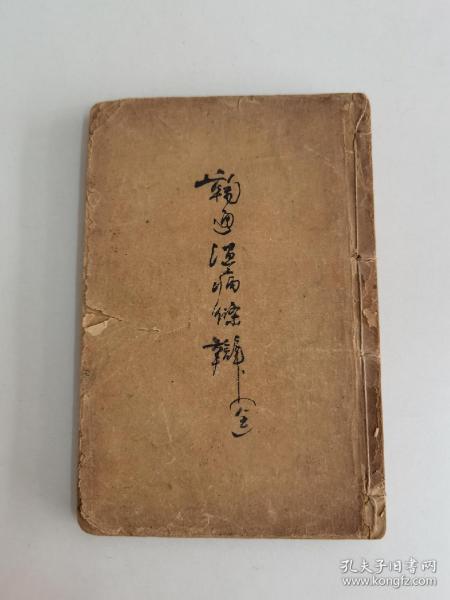 鞠通温病條辯(全)
孔夫子旧书网
www.kongfz.com